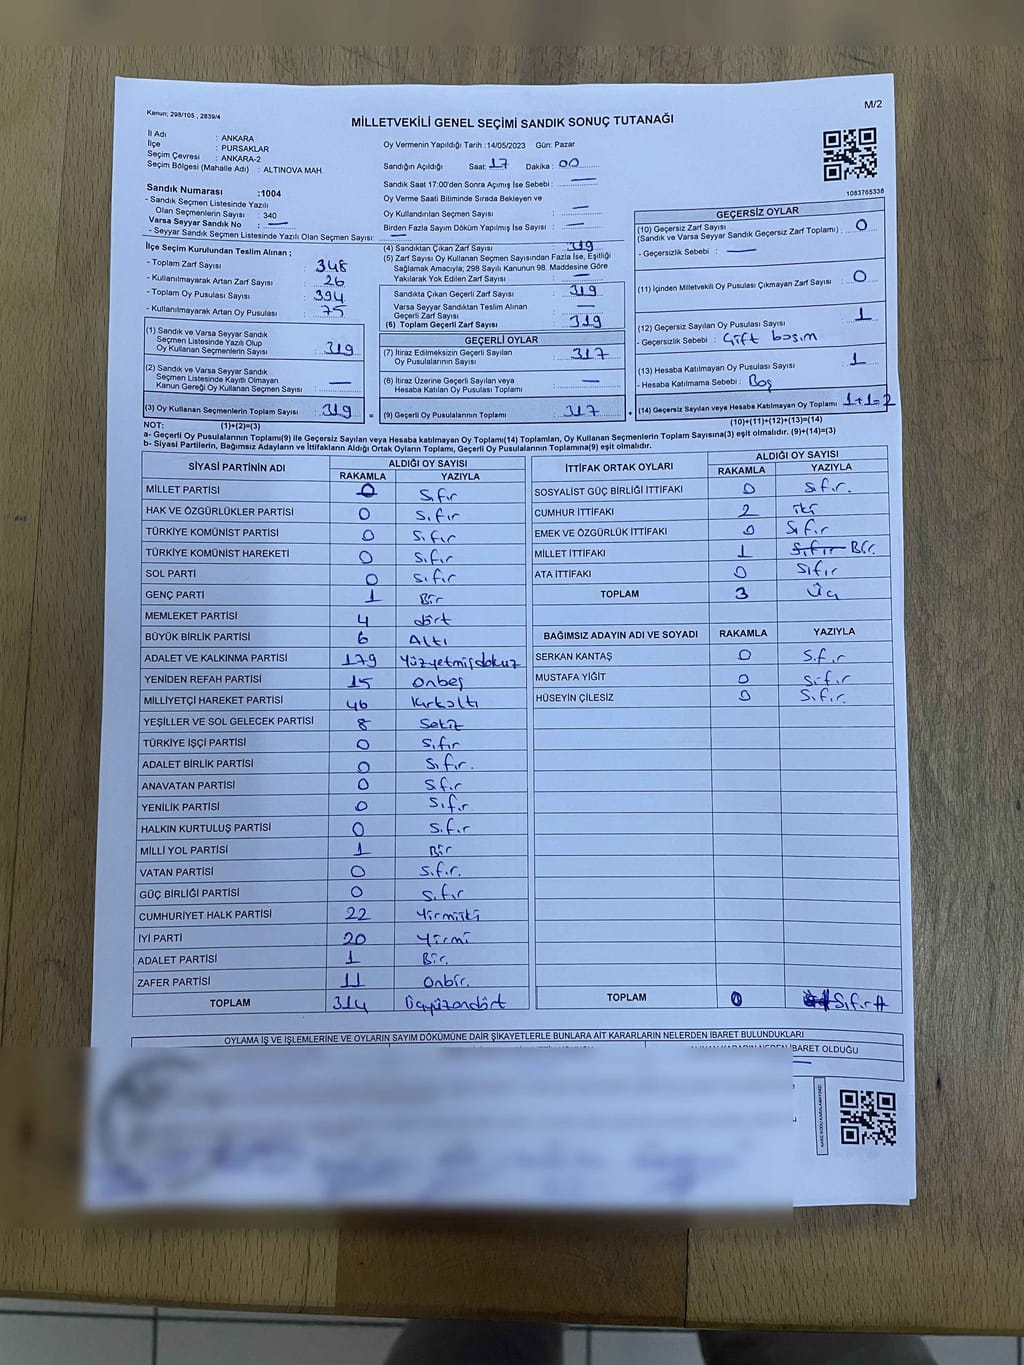 Kanun; 298/105 , 2839/4
M/2
MİLLETVEKİLİ GENEL SEÇİMİ SANDIK SONUÇ TUTANAĞI
İl Adı : ANKARA
İlçe : PURSAKLAR
Seçim Çevresi : ANKARA-2
Seçim Bölgesi (Mahalle Adı) : ALTINOVA MAH.
Sandık Numarası :1004
- Sandık Seçmen Listesinde Yazılı
Olan Seçmenlerin Sayısı : 340
Varsa Seyyar Sandık No : —
- Seyyar Sandık Seçmen Listesinde Yazılı Olan Seçmen Sayısı: —
Oy Vermenin Yapıldığı Tarih :14/05/2023 Gün: Pazar
Sandığın Açıldığı Saat: 17 Dakika : 00
Sandık Saat 17:00'den Sonra Açımış İse Sebebi : —
Oy Verme Saati Bitiminde Sırada Bekleyen ve
Oy Kullandırılan Seçmen Sayısı : —
Birden Fazla Sayım Döküm Yapılmış İse Sayısı : —
1083765338
İlçe Seçim Kurulundan Teslim Alınan ;
- Toplam Zarf Sayısı : 348
- Kullanılmayarak Artan Zarf Sayısı : 26
- Toplam Oy Pusulası Sayısı : 394
- Kullanılmayarak Artan Oy Pusulası : 75
(1) Sandık ve Varsa Seyyar Sandık
Seçmen Listesinde Yazılı Olup
Oy Kullanan Seçmenlerin Sayısı : 319
(2) Sandık ve Varsa Seyyar Sandık
Seçmen Listesinde Kayıtlı Olmayan
Kanun Gereği Oy Kullanan Seçmen Sayısı : —
(3) Oy Kullanan Seçmenlerin Toplam Sayısı : 319 =
(4) Sandıktan Çıkan Zarf Sayısı : 319
(5) Zarf Sayısı Oy Kullanan Seçmen Sayısından Fazla İse, Eşitliği
Sağlamak Amacıyla; 298 Sayılı Kanunun 98. Maddesine Göre
Yakılarak Yok Edilen Zarf Sayısı : —
Sandıkta Çıkan Geçerli Zarf Sayısı : 319
Varsa Seyyar Sandıktan Teslim Alınan
Geçerli Zarf Sayısı : —
(6) Toplam Geçerli Zarf Sayısı : 319
GEÇERLİ OYLAR
(7) İtiraz Edilmeksizin Geçerli Sayılan
Oy Pusulalarının Sayısı : 317
(8) İtiraz Üzerine Geçerli Sayılan veya
Hesaba Katılan Oy Pusulası Toplamı : —
(9) Geçerli Oy Pusulalarının Toplamı : 317 +
GEÇERSİZ OYLAR
(10) Geçersiz Zarf Sayısı
(Sandık ve Varsa Seyyar Sandık Geçersiz Zarf Toplamı) : 0
- Geçersizlik Sebebi : —
(11) İçinden Milletvekili Oy Pusulası Çıkmayan Zarf Sayısı : 0
(12) Geçersiz Sayılan Oy Pusulası Sayısı : 1
- Geçersizlik Sebebi : Çift basım
(13) Hesaba Katılmayan Oy Pusulası Sayısı : 1
- Hesaba Katılmama Sebebi : Boş
(14) Geçersiz Sayılan veya Hesaba Katılmayan Oy Toplamı : 1+1=2
NOT: (1)+(2)=(3) (10)+(11)+(12)+(13)=(14)
a- Geçerli Oy Pusulalarının Toplamı(9) ile Geçersiz Sayılan veya Hesaba katılmayan Oy Toplamı(14) Toplamları, Oy Kullanan Seçmenlerin Toplam Sayısına(3) eşit olmalıdır. (9)+(14)=(3)
b- Siyasi Partilerin, Bağımsız Adayların ve İttifakların Aldığı Ortak Oyların Toplamı, Geçerli Oy Pusulalarının Toplamına(9) eşit olmalıdır.
SİYASİ PARTİNİN ADI ALDIĞI OY SAYISI
RAKAMLA YAZIYLA
MİLLET PARTİSİ 0 Sıfır
HAK VE ÖZGÜRLÜKLER PARTİSİ 0 Sıfır
TÜRKİYE KOMÜNİST PARTİSİ 0 Sıfır
TÜRKİYE KOMÜNİST HAREKETİ 0 Sıfır
SOL PARTİ 0 Sıfır
GENÇ PARTİ 1 Bir
MEMLEKET PARTİSİ 4 dört
BÜYÜK BİRLİK PARTİSİ 6 Altı
ADALET VE KALKINMA PARTİSİ 179 Yüzyetmişdokuz
YENİDEN REFAH PARTİSİ 15 Onbeş
MİLLİYETÇİ HAREKET PARTİSİ 46 Kırkaltı
YEŞİLLER VE SOL GELECEK PARTİSİ 8 Sekiz
TÜRKİYE İŞÇİ PARTİSİ 0 Sıfır
ADALET BİRLİK PARTİSİ 0 Sıfır.
ANAVATAN PARTİSİ 0 Sıfır
YENİLİK PARTİSİ 0 Sıfır
HALKIN KURTULUŞ PARTİSİ 0 Sıfır
MİLLİ YOL PARTİSİ 1 Bir
VATAN PARTİSİ 0 Sıfır.
GÜÇ BİRLİĞİ PARTİSİ 0 Sıfır
CUMHURİYET HALK PARTİSİ 22 Yirmiiki
İYİ PARTİ 20 Yirmi
ADALET PARTİSİ 1 Bir.
ZAFER PARTİSİ 11 Onbir.
TOPLAM 314 Üçyüzondört
İTTİFAK ORTAK OYLARI ALDIĞI OY SAYISI
RAKAMLA YAZIYLA
SOSYALİST GÜÇ BİRLİĞİ İTTİFAKI 0 Sıfır.
CUMHUR İTTİFAKI 2 iki
EMEK VE ÖZGÜRLÜK İTTİFAKI 0 Sıfır
MİLLET İTTİFAKI 1 Sıfır Bir.
ATA İTTİFAKI 0 Sıfır
TOPLAM 3 Üç
BAĞIMSIZ ADAYIN ADI VE SOYADI RAKAMLA YAZIYLA
SERKAN KANTAŞ 0 Sıfır
MUSTAFA YİĞİT 0 Sıfır
HÜSEYİN ÇİLESİZ 0 Sıfır.
TOPLAM 0 Sıfır
OYLAMA İŞ VE İŞLEMLERİNE VE OYLARIN SAYIM DÖKÜMÜNE DAİR ŞİKAYETLERLE BUNLARA AİT KARARLARIN NELERDEN İBARET BULUNDUKLARI
İBARET OLDUĞU